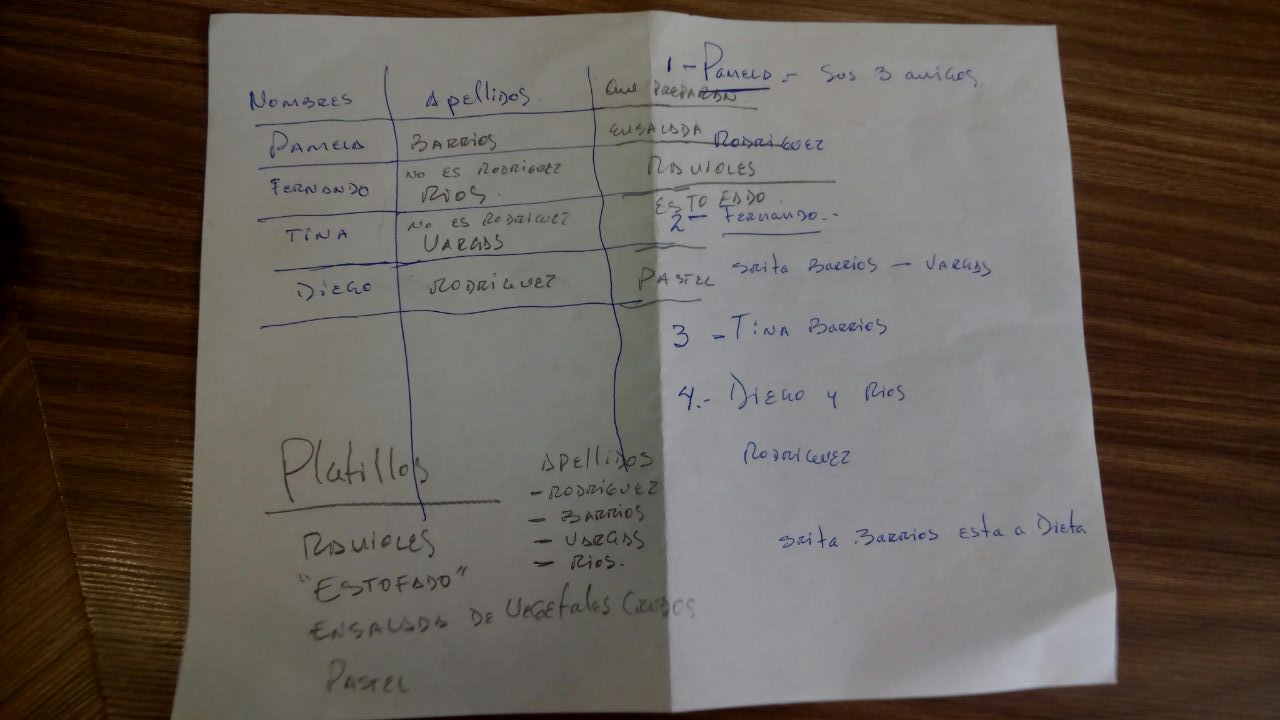 Nombres Apellidos Que PREPARAN
PAMELA BARRIOS ENSALADA
FERNANDO NO ES RODRIGUEZ RIOS RAVIOLES
TINA NO ES RODRIGUEZ VARGAS ESTOFADO
DIEGO RODRIGUEZ PASTEL
Platillos
RAVIOLES
"ESTOFADO"
ENSALADA DE VEGETALES CRUDOS
PASTEL
APELLIDOS
- RODRIGUEZ
- BARRIOS
- VARGAS
- RIOS.
1 - PAMELA - Sus 3 amigos.
RODRIGUEZ
2 - FERNANDO.-
Srita Barrios - VARGAS
3 - TINA BARRIOS
4.- DIEGO y Rios
RODRIGUEZ
Srita Barrios esta a Dieta